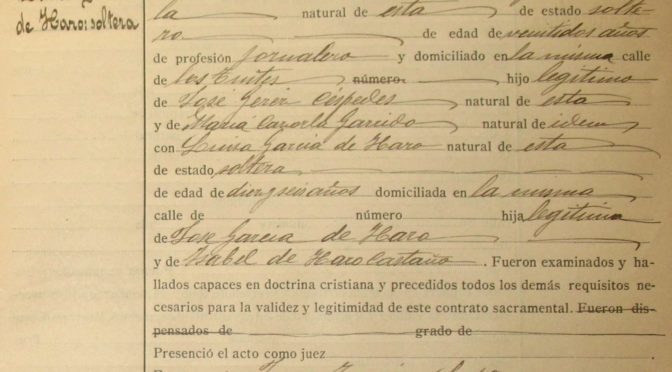 de Haro: soltera
la natural de esta de estado solte-
ro de edad de veintidos años
de profesión jornalero y domiciliado en la misma calle
de los número. hijo legítimo
de José Cespedes natural de esta
y de María Cazorla Garrido natural de idem
con Luisa García de Haro natural de esta
de estado soltera
de edad de diez y seis años domiciliada en la misma
calle de número hija legítima
de José García de Haro
y de Isabel de Haro Castaño. Fueron examinados y ha-
llados capaces en doctrina cristiana y precedidos todos los demás requisitos ne-
cesarios para la validez y legitimidad de este contrato sacramental. Fueron dis-
pensados de grado de
Presenció el acto como juez